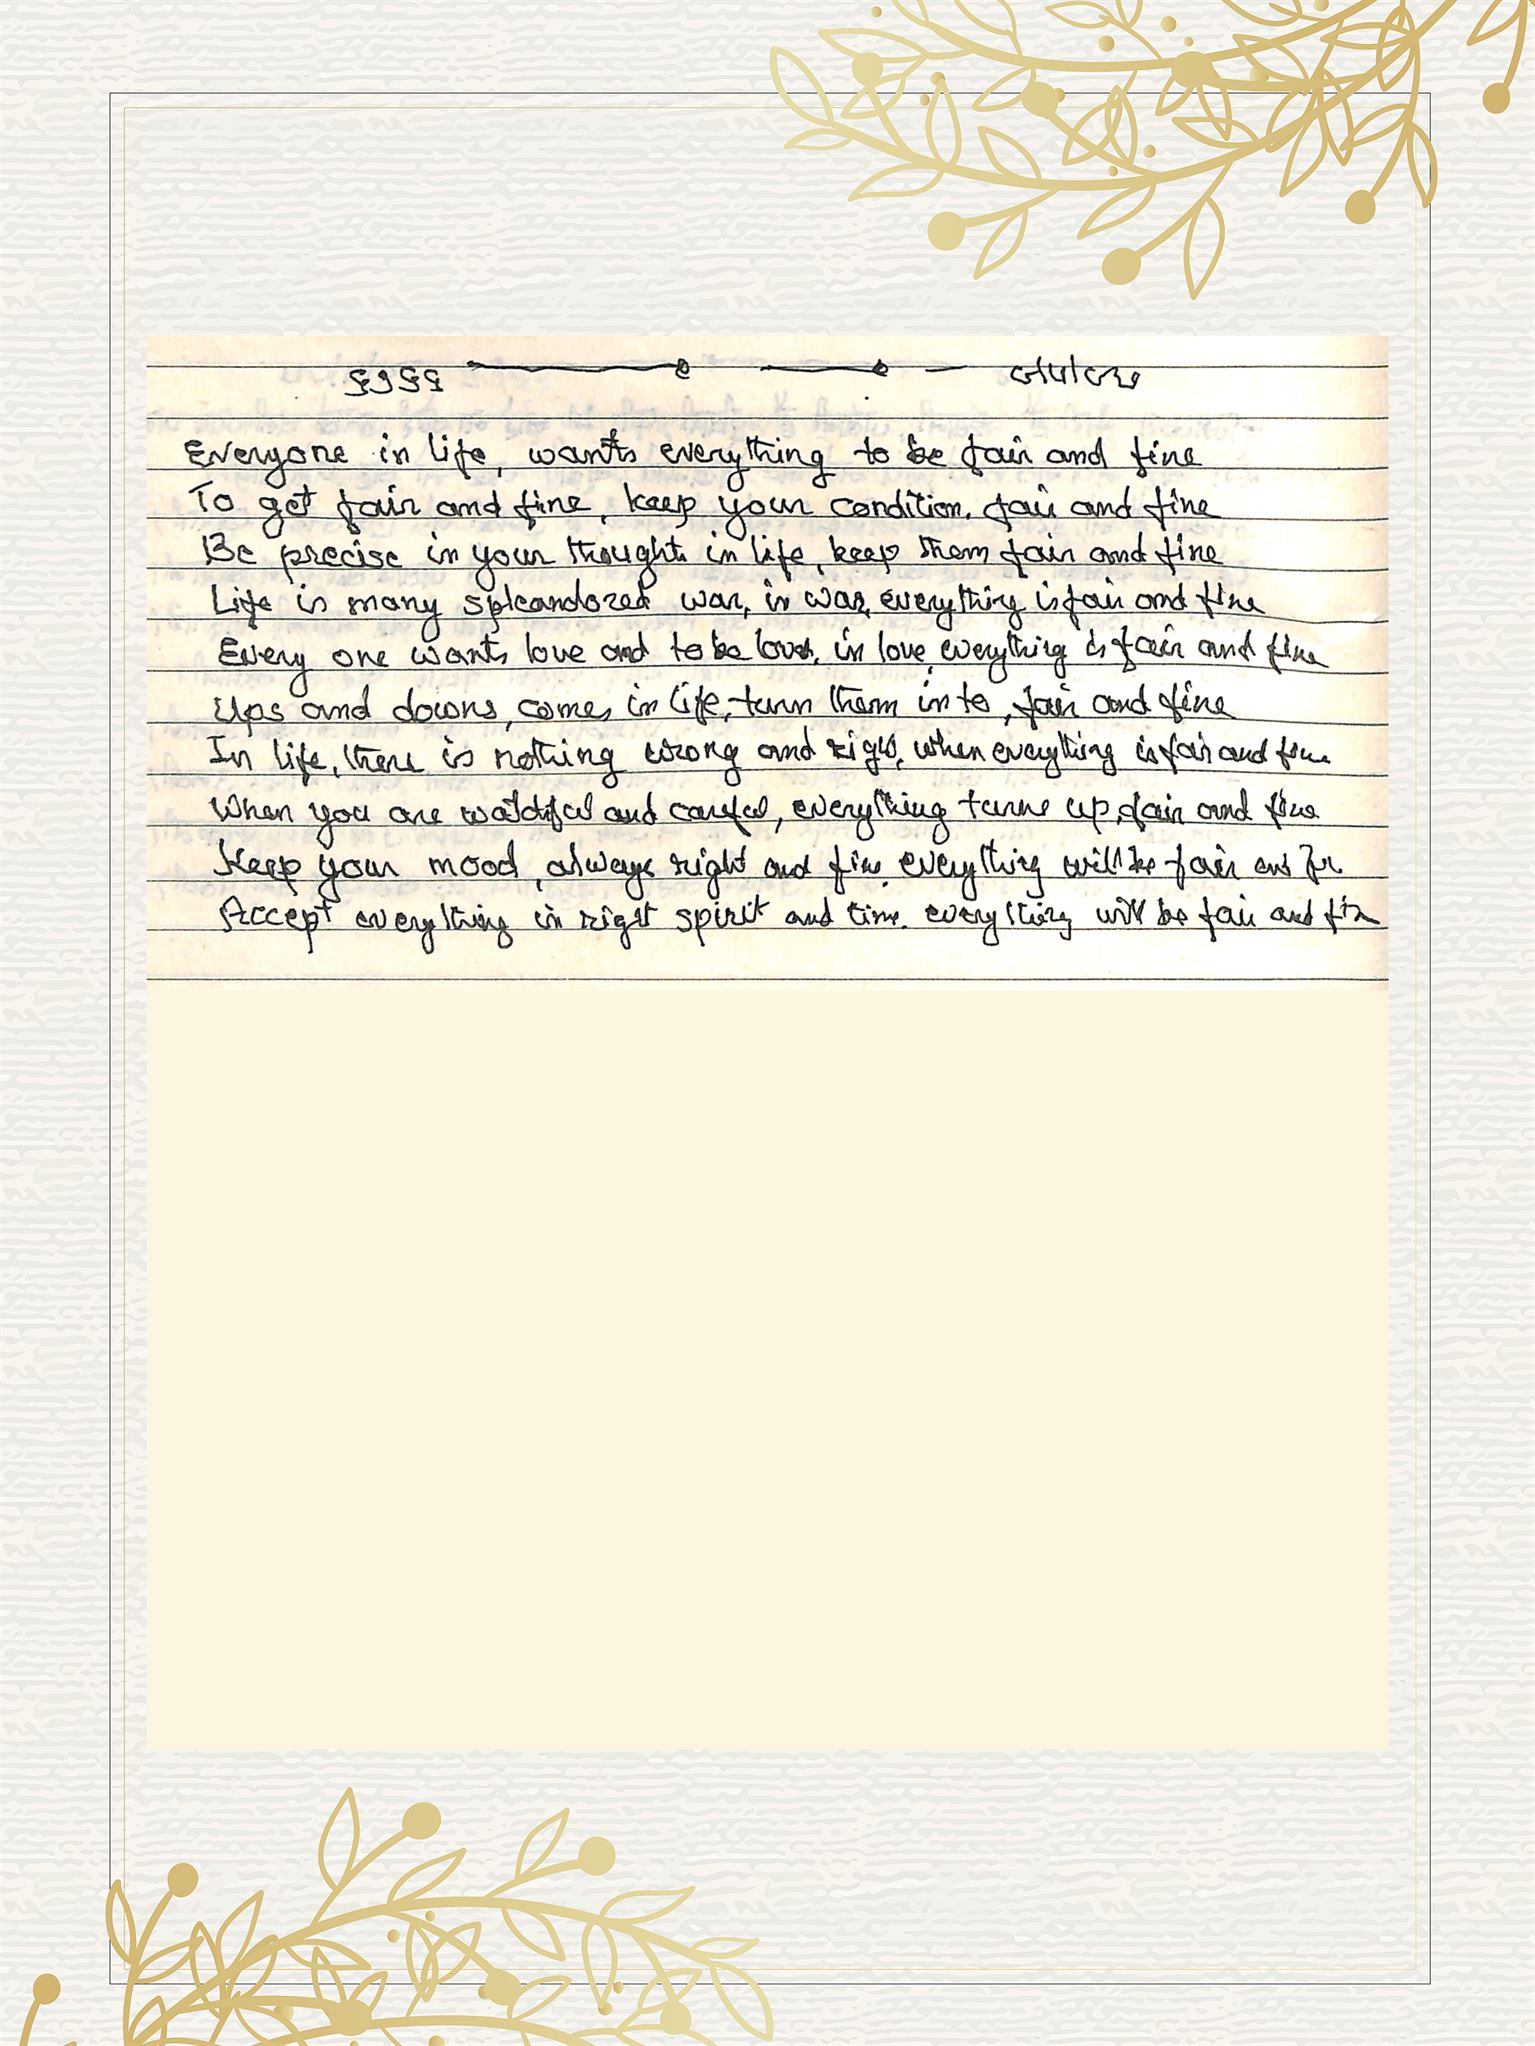 Everyone in life, wants everything to be fair and fine
To get fair and fine, keep your condition, fair and fine
Be precise in your thoughts in life, keep them fair and fine
Life is many spleandored war, in war, everything is fair and fine
Every one wants love and to be loved, in love, everything is fair and fine
Ups and downs, comes in life, turn them in to, fair and fine
In life, there is nothing wrong and right, when everything is fair and fine
When you are watchful and careful, everything turns up, fair and fine
Keep your mood, always right and fine, everything will be fair and
Accept everything in right spirit and time. everything will be fair and fine